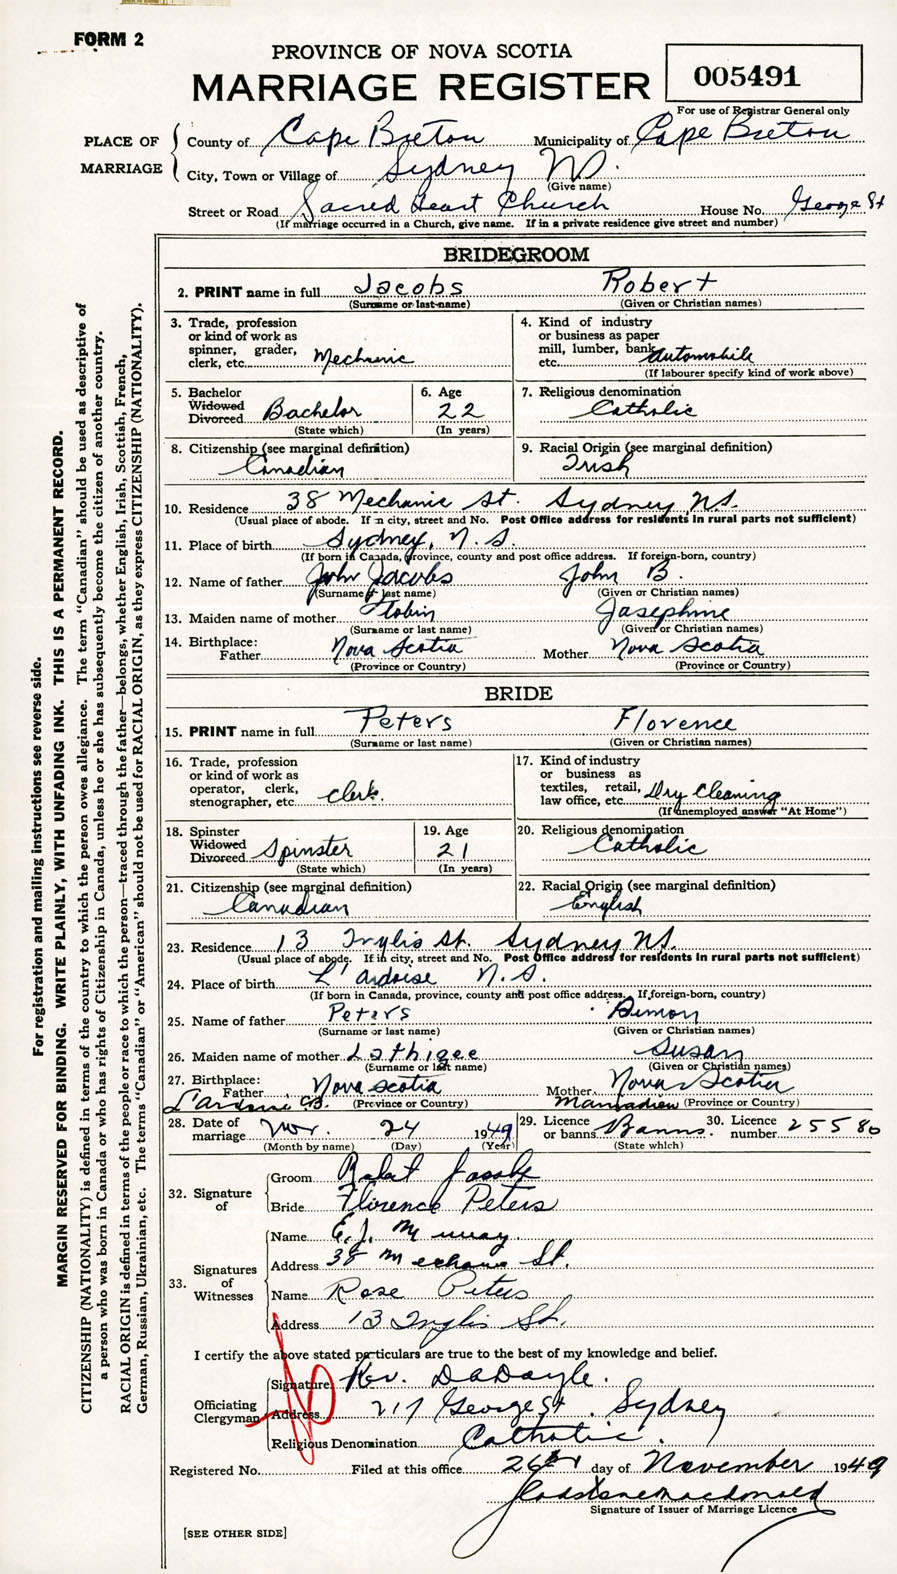 FORM 2
PROVINCE OF NOVA SCOTIA
MARRIAGE REGISTER
005491
For use of Registrar General only
PLACE OF MARRIAGE
County of Cape Breton Municipality of Cape Breton
City, Town or Village of Sydney NS.
(Give name)
Street or Road Sacred Heart Church House No. George St
(If marriage occurred in a Church, give name. If in a private residence give street and number)
BRIDEGROOM
2. PRINT name in full Jacobs Robert
(Surname or last name) (Given or Christian names)
3. Trade, profession or kind of work as spinner, grader, clerk, etc. Mechanic
4. Kind of industry or business as paper mill, lumber, bank, etc. Automobile
(If labourer specify kind of work above)
5. Bachelor Widowed Divorced Bachelor
(State which)
6. Age 22
(In years)
7. Religious denomination Catholic
8. Citizenship (see marginal definition) Canadian
9. Racial Origin (see marginal definition) Irish
10. Residence 38 Mechanic St. Sydney NS.
(Usual place of abode. If in city, street and No. Post Office address for residents in rural parts not sufficient)
11. Place of birth Sydney, N.S.
(If born in Canada, province, county and post office address. If foreign-born, country)
12. Name of father John Jacobs John B.
(Surname or last name) (Given or Christian names)
13. Maiden name of mother Tobin Josephine
(Surname or last name) (Given or Christian names)
14. Birthplace: Father Nova Scotia Mother Nova Scotia
(Province or Country) (Province or Country)
BRIDE
15. PRINT name in full Peters Florence
(Surname or last name) (Given or Christian names)
16. Trade, profession or kind of work as operator, clerk, stenographer, etc. Clerk.
17. Kind of industry or business as textiles, retail, law office, etc. Dry Cleaning
(If unemployed answer "At Home")
18. Spinster Widowed Divorced Spinster
(State which)
19. Age 21
(In years)
20. Religious denomination Catholic
21. Citizenship (see marginal definition) Canadian
22. Racial Origin (see marginal definition) English
23. Residence 13 Inglis St. Sydney NS.
(Usual place of abode. If in city, street and No. Post Office address for residents in rural parts not sufficient)
24. Place of birth L'ardoise N.S.
(If born in Canada, province, county and post office address. If foreign-born, country)
25. Name of father Peters Simon
(Surname or last name) (Given or Christian names)
26. Maiden name of mother Lathigee Susan
(Surname or last name) (Given or Christian names)
27. Birthplace: Father Nova Scotia Mother Nova Scotia
L'ardoise C.B. (Province or Country) (Province or Country)
28. Date of marriage Nov. 24 1949
(Month by name) (Day) (Year)
29. Licence or banns Banns.
(State which)
30. Licence number 25580
32. Signature of
Groom Robert Jacobs
Bride Florence Peters
33. Signatures of Witnesses
Name E.J.
Address 38 Mechanic St.
Name Rose Peters
Address 13 Inglis St.
I certify the above stated particulars are true to the best of my knowledge and belief.
Officiating Clergyman
Signature Rev.
Address 217 George St. Sydney
Religious Denomination Catholic.
Registered No. Filed at this office 26th day of November 1949
Macdonald
Signature of Issuer of Marriage Licence
[SEE OTHER SIDE]
For registration and mailing instructions see reverse side.
MARGIN RESERVED FOR BINDING. WRITE PLAINLY, WITH UNFADING INK. THIS IS A PERMANENT RECORD.
CITIZENSHIP (NATIONALITY) is defined in terms of the country to which the person owes allegiance. The term "Canadian" should be used as descriptive of
a person who was born in Canada or who has rights of Citizenship in Canada, unless he or she has subsequently become the citizen of another country.
RACIAL ORIGIN is defined in terms of the people or race to which the person—traced through the father—belongs, whether English, Irish, Scottish, French,
German, Russian, Ukrainian, etc. The terms "Canadian" or "American" should not be used for RACIAL ORIGIN, as they express CITIZENSHIP (NATIONALITY).